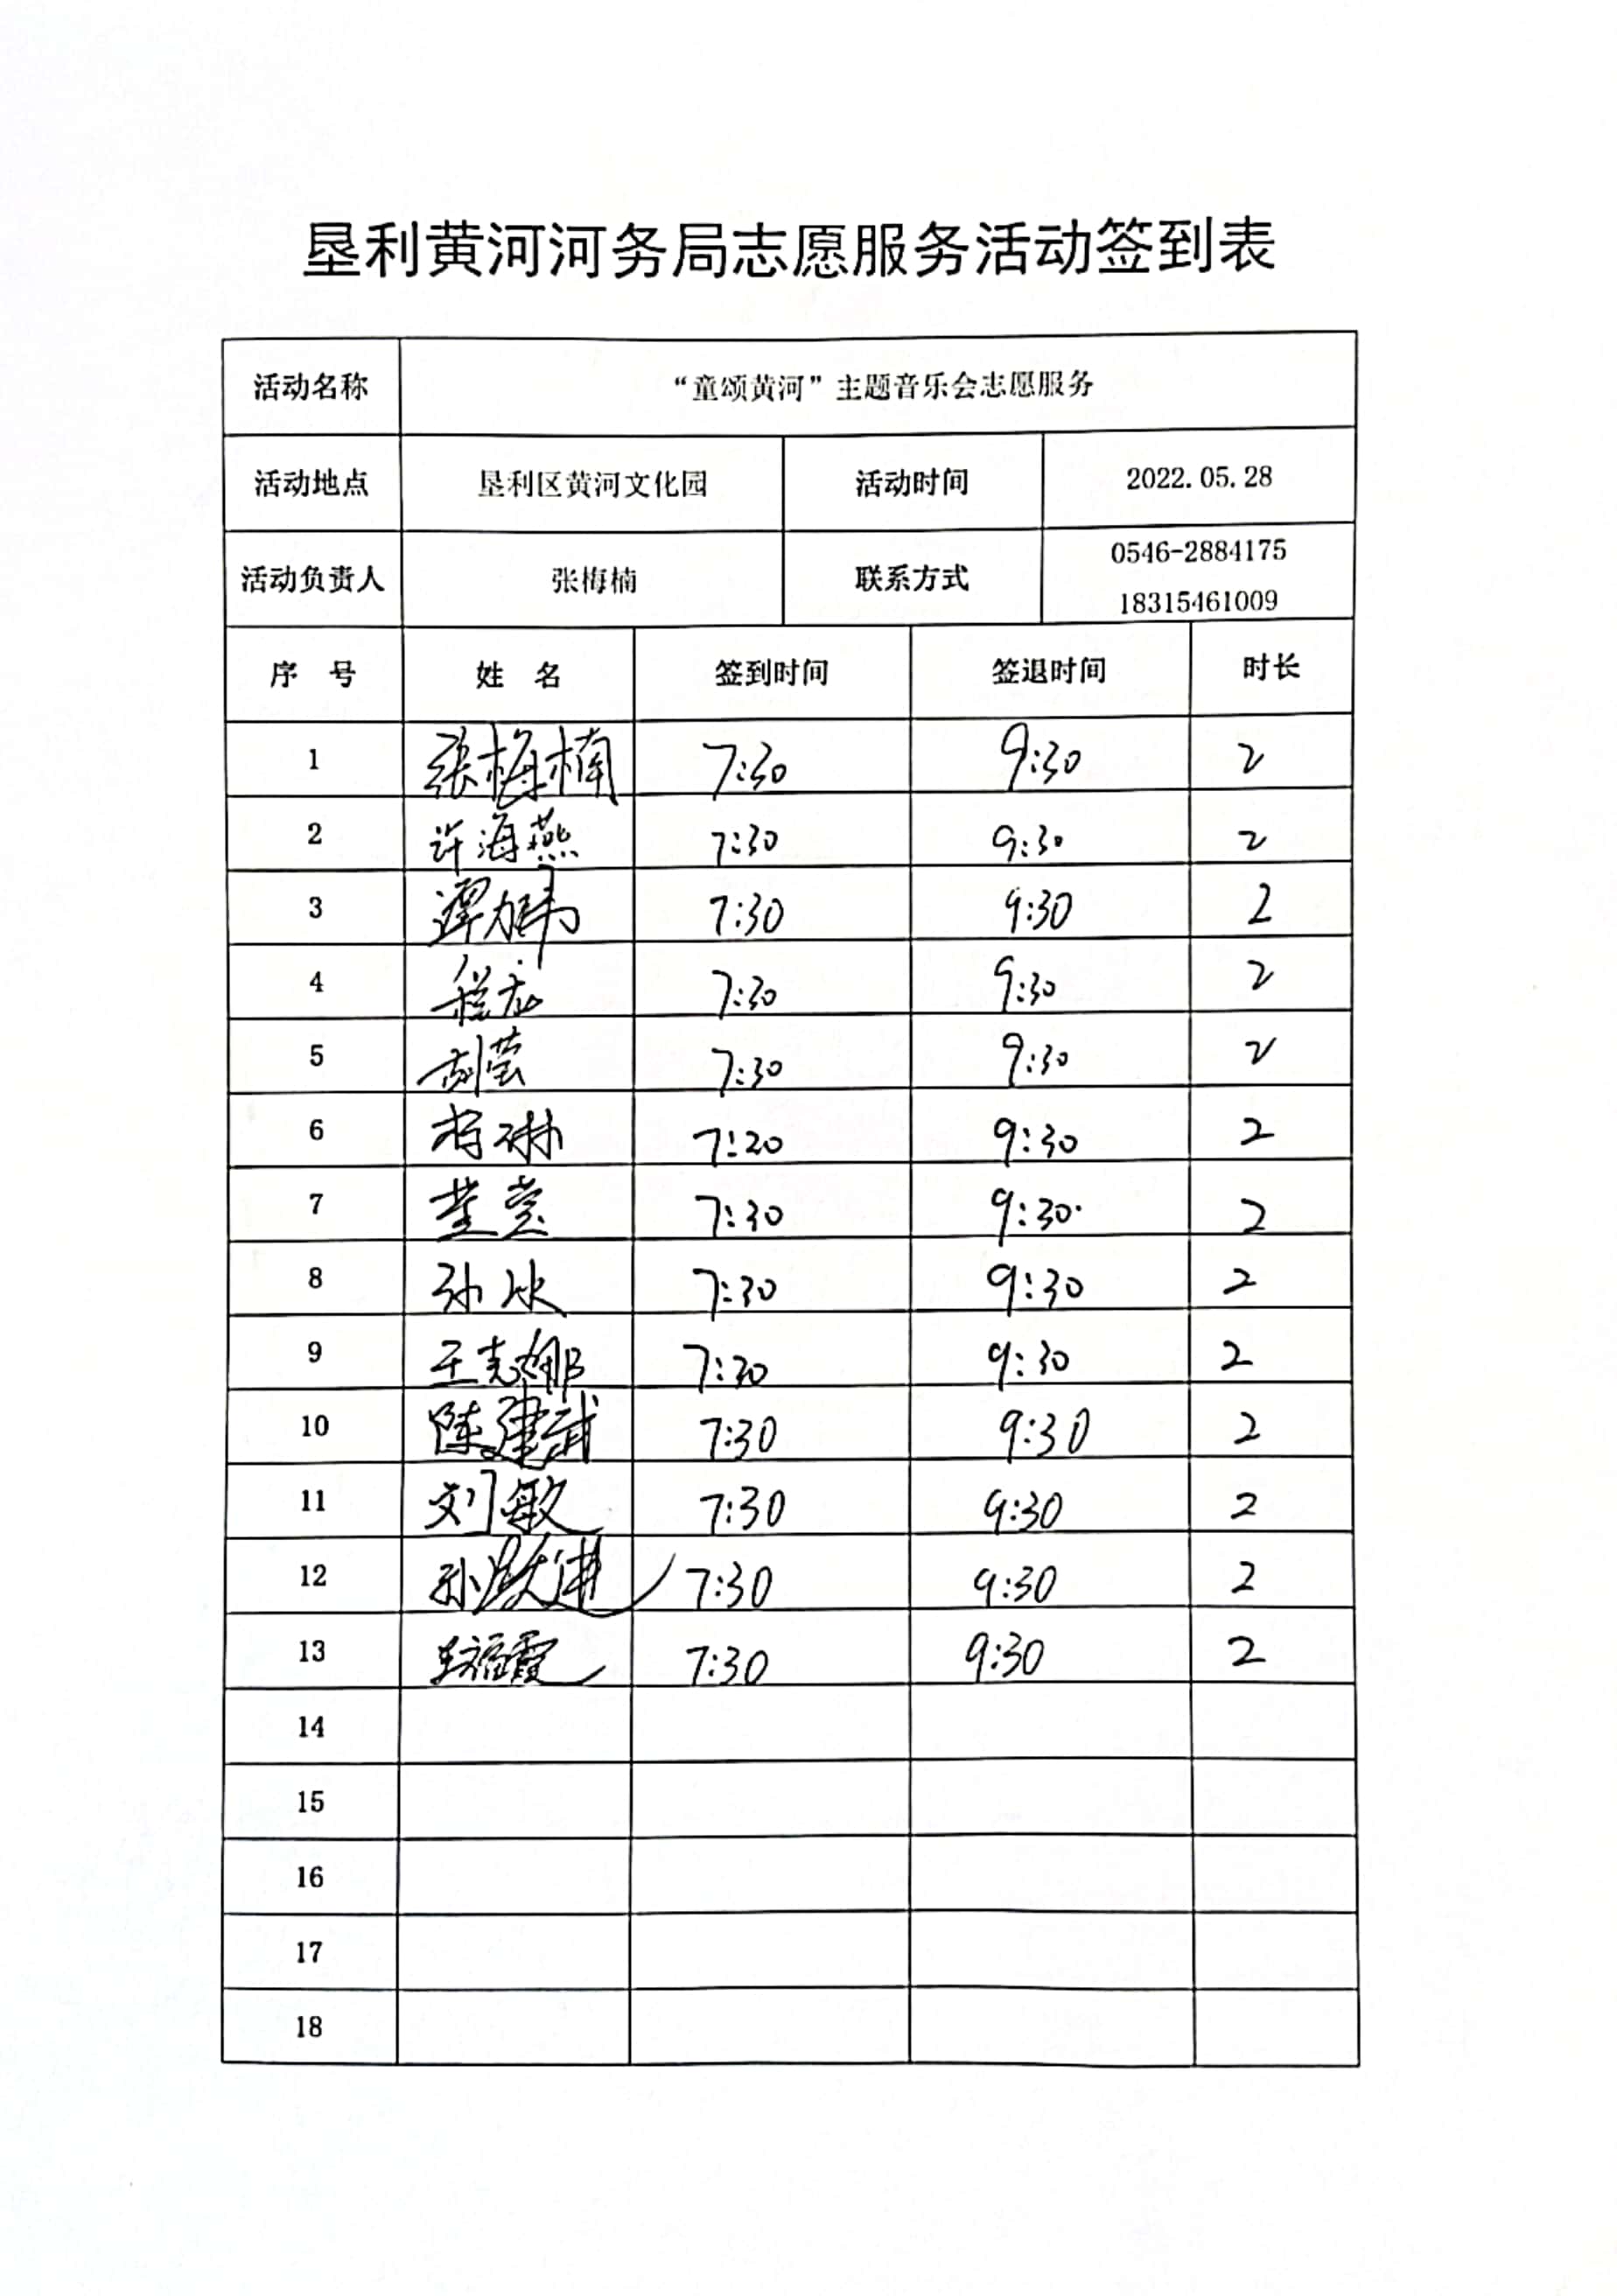 垦利黄河河务局志愿服务活动签到表
活动名称 “童颂黄河”主题音乐会志愿服务
活动地点 垦利区黄河文化园 活动时间 2022.05.28
活动负责人 张梅楠 联系方式 0546-2884175
18315461009
序 号 姓 名 签到时间 签退时间 时长
1 张梅楠 7:30 9:30 2
2 许海燕 7:30 9:30 2
3 7:30 9:30 2
4 程龙 7:30 9:30 2
5 7:30 9:30 2
6 7:20 9:30 2
7 董莹 7:30 9:30 2
8 孙冰 7:30 9:30 2
9 王志娜 7:30 9:30 2
10 陈建武 7:30 9:30 2
11 刘敏 7:30 9:30 2
12 孙跃进 7:30 9:30 2
13 7:30 9:30 2
14
15
16
17
18